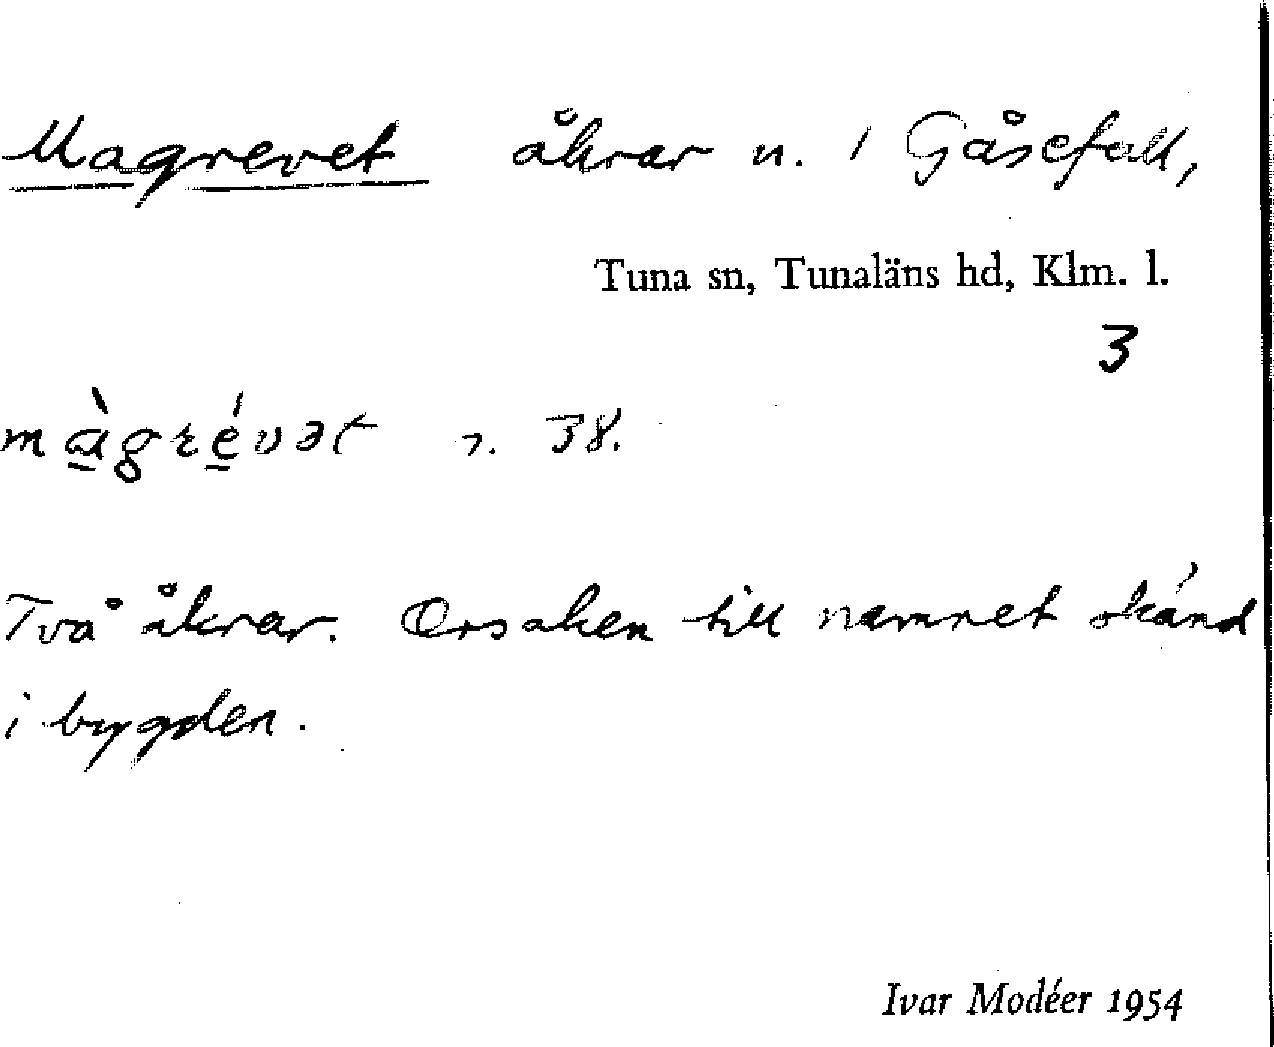 Magrevet åkrar n. i Gåsefall,
Tuna sn, Tunaläns hd, Klm. l.
3
màgrévət n. 38.
Två åkrar. Orsaken till namnet okänd
i bygden.
Ivar Modéer 1954